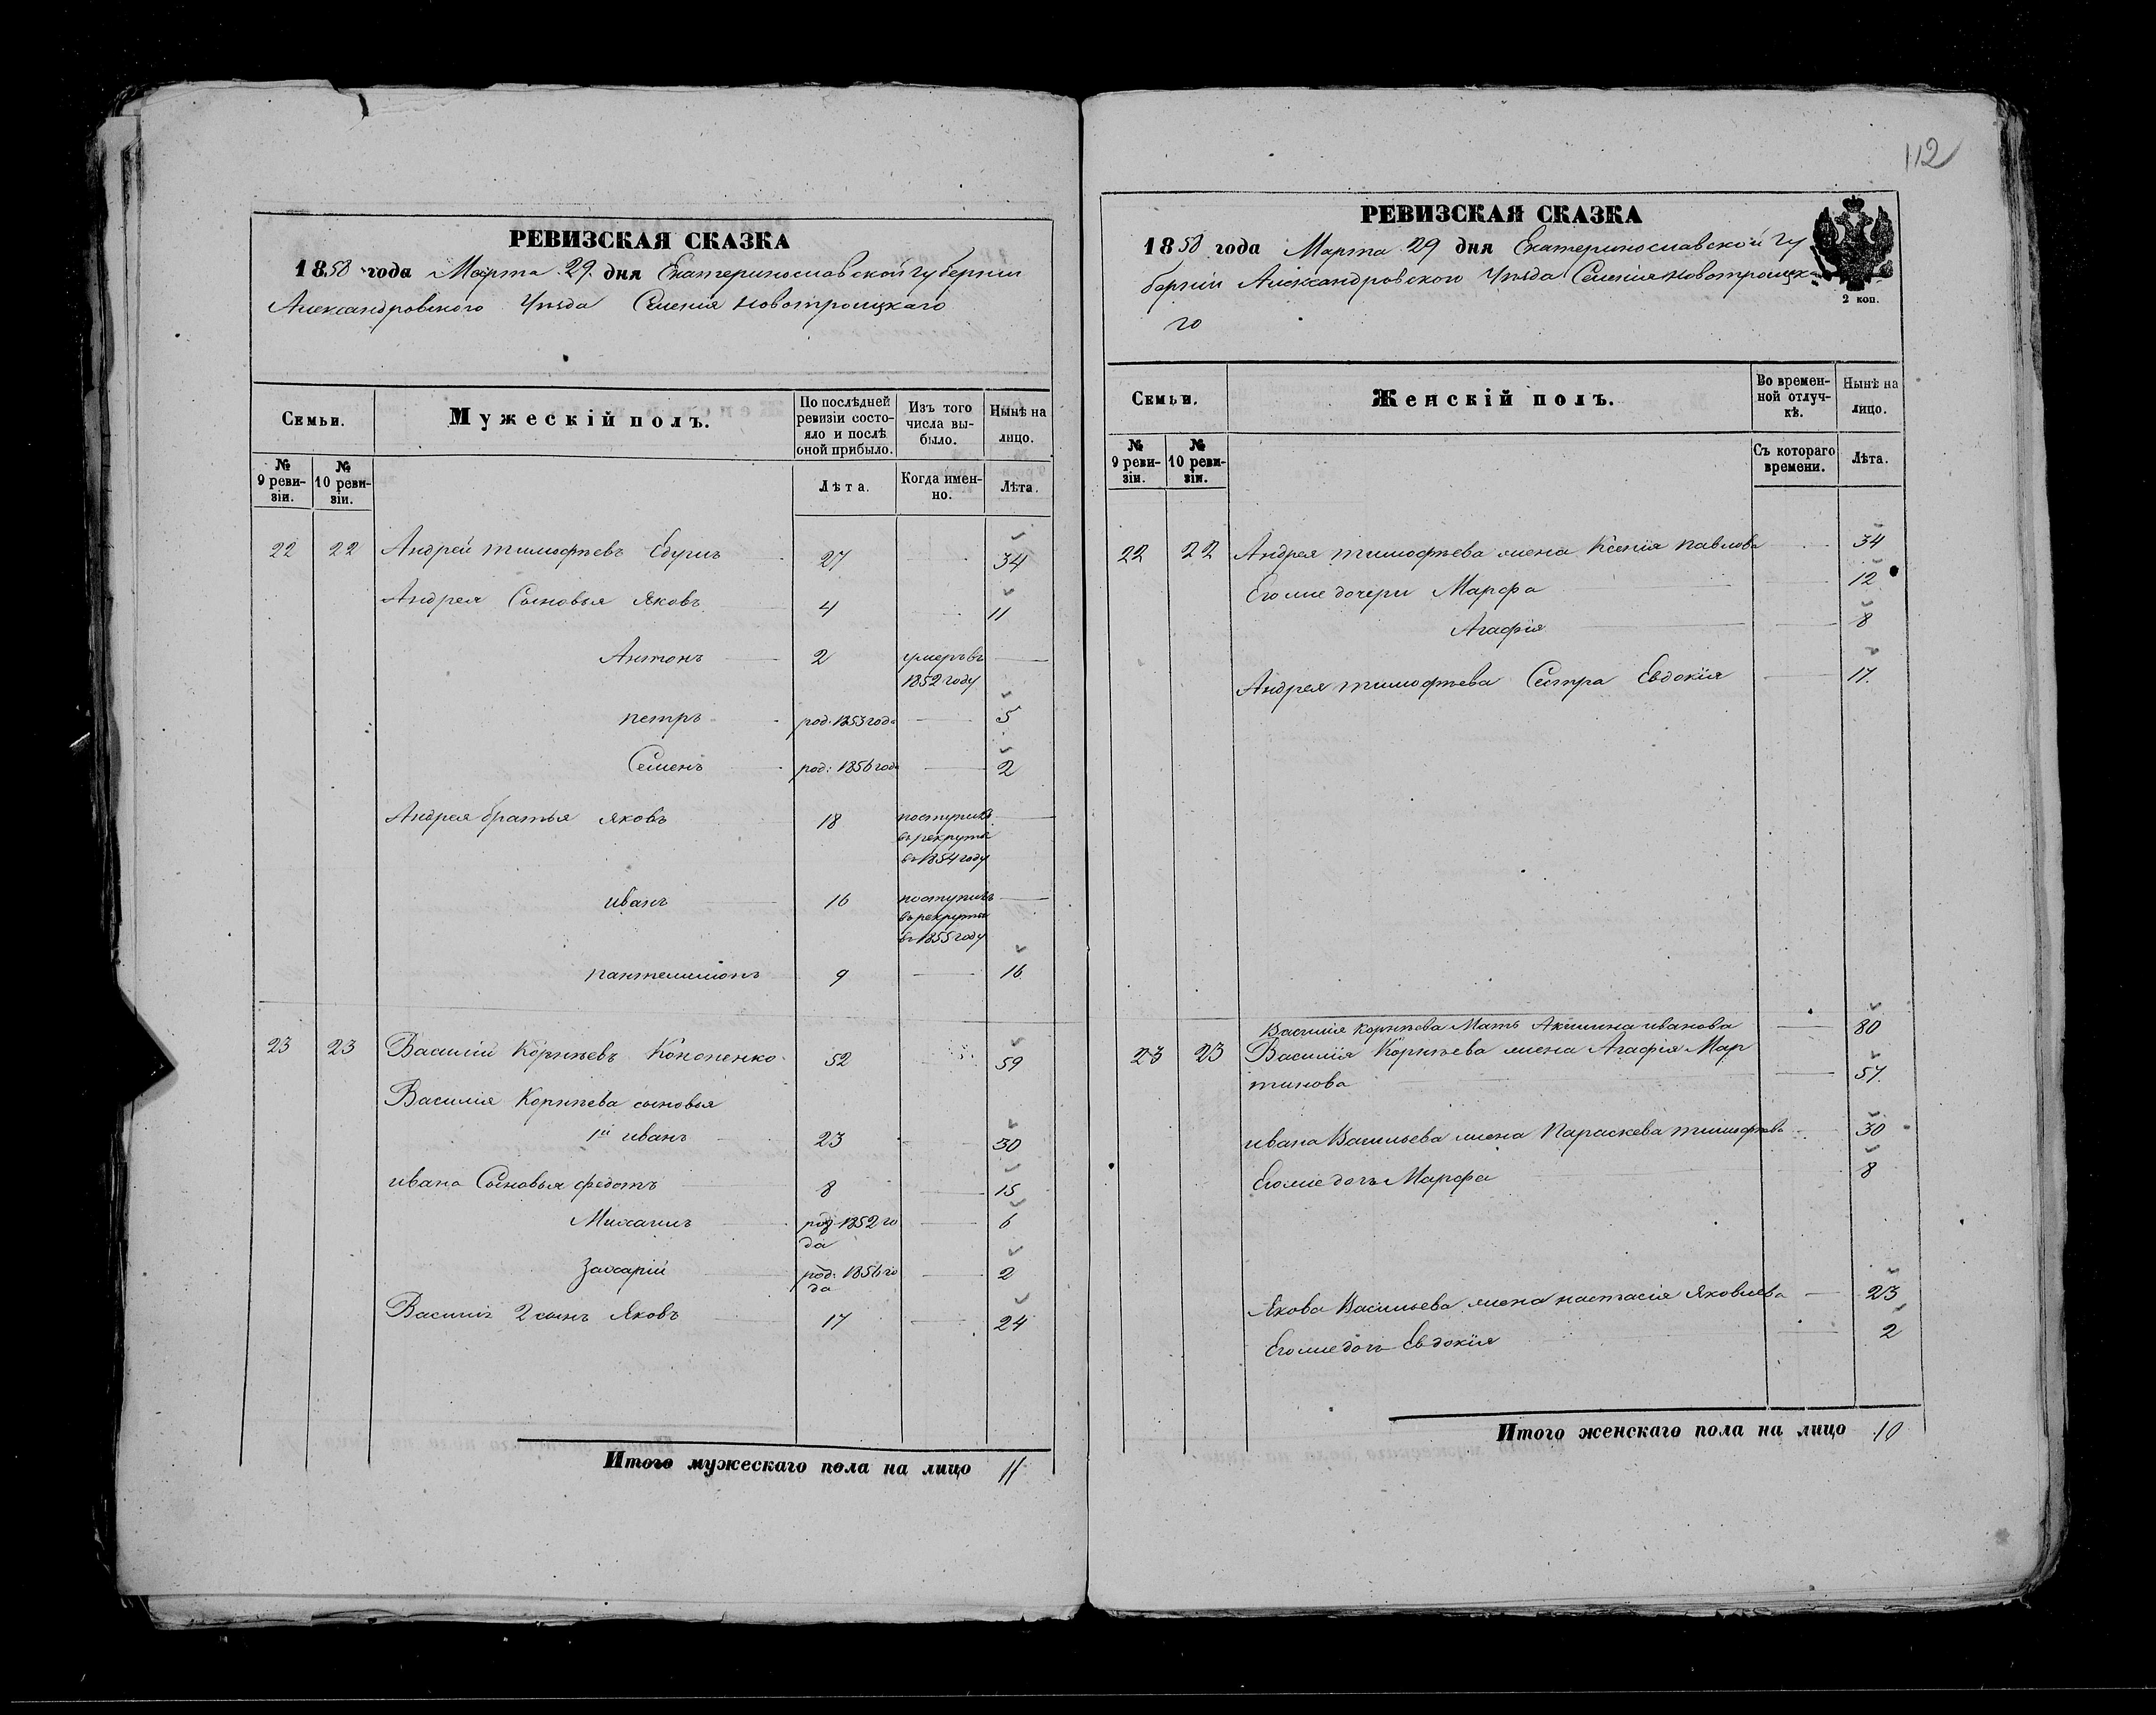 112
РЕВИЗСКАЯ СКАЗКА
1858 года Марта 29 дня Екатеринославской губернии
Александровского Уѣзда Селенія Новотроицкаго
Семьи.
Мужескій полъ.
По послѣдней ревизіи состояло и послѣ оной прибыло.
Изъ того числа выбыло.
Нынѣ на лицо.
№ 9 ревизіи.
№ 10 ревизіи.
Лѣта.
Когда именно.
Лѣта.
22 22 Андрей Тимофѣевъ 27 34
Андрея Сыновья Яковъ 4 11
Антонъ 2 умеръ въ
1852 году
петръ род: 1853 года 5
Семенъ род: 1856 года 2
Андрея братья яковъ 18 поступилъ
въ рекруты
въ 1854 году
иванъ 16 поступилъ
въ рекруты
въ 1855 году
пантелимонъ 9 16
23 23 Василій Корнѣевъ Кононенко 52 59
Василія Корнѣева сыновья
1й иванъ 23 30
ивана Сыновья федотъ 8 15
Михаилъ род: 1852 го 6
да
Захарій род: 1856 го 2
да
Василія 2 сынъ Яковъ 17 24
Итого мужескаго пола на лицо 11
РЕВИЗСКАЯ СКАЗКА
1858 года Марта 29 дня Екатеринославской Гу
берніи Александровского Уѣзда Селенія Новотроицка
го
2 коп.
Семьи.
Женскій полъ.
Во временной отлучкѣ.
Нынѣ на лицо.
№ 9 ревизіи.
№ 10 ревизіи.
Съ котораго времени.
Лѣта.
22 22 Андрея тимофѣева жена Ксенія павлова 34
Его же дочери Марфа 12
Агафія 8
Андрея тимофѣева Сестра Евдокія 17.
Василія Корнѣева Мать Акилина иванова 80
23 23 Василія Корнѣева жена Агафія Мар
тинова 57.
ивана Васильева жена Параскева тимофѣева 30
Его же дочь Марфа 8
Якова Васильева жена настасія Яковлева 23
Его же дочь Евдокія 2
Итого женскаго пола на лицо 10